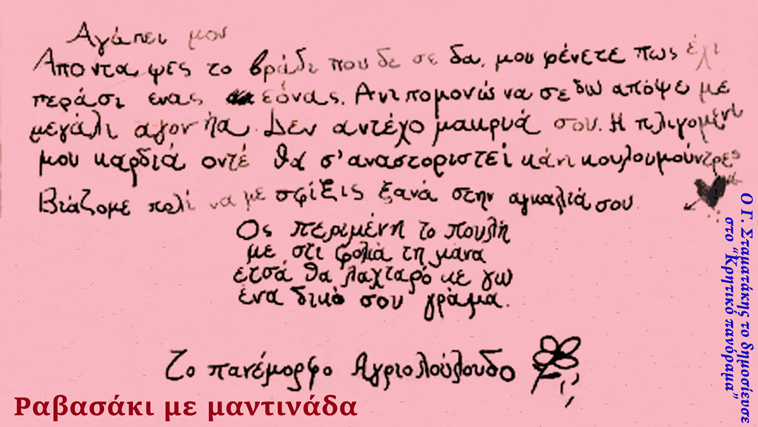 Αγάπει μου
Απο ντα ψες το βράδι που δε σε δα, μου φένετε πως έχι
περάσι ενας εόνας. Ανιπομονώ να σε δω απόψε με
μεγάλι αγονήα. Δεν αντέχο μακρυά σου. Η πλιγομένι
μου καρδιά οντέ θα σ'αναστοριστεί κάνι κουλουμούντρες
Βιάζομε πολί να με σφίξις ξανά στην αγκαλιά σου
Ος περιμένη το πουλή
με στι φολιά τη μάνα
ετσά θα λαχταρό κε γω
ένα δικό σου γράμα.
Το πανέμορφο Αγριολούλουδο
Ραβασάκι με μαντινάδα
Ο Γ. Σταματάκης το δημοσίευσε
στο "Κρητικό πανόραμα"